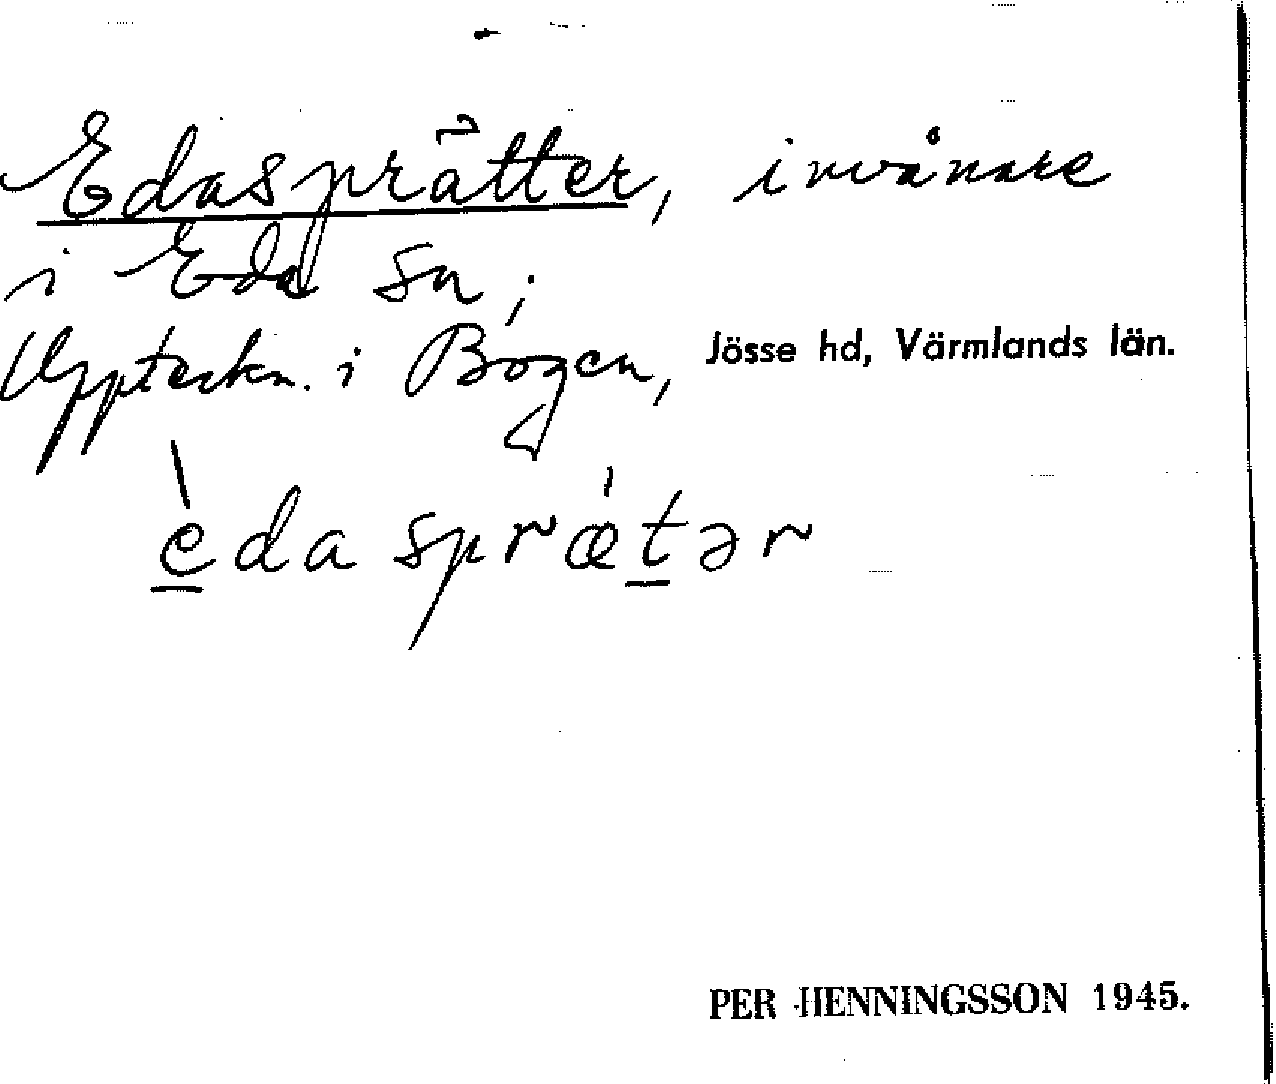 Edasprätter, invånare
i Eda sn;
Uppteckn. i Bogen, Jösse hd, Värmlands län.
èdasprǽtər
PER HENNINGSSON 1945.